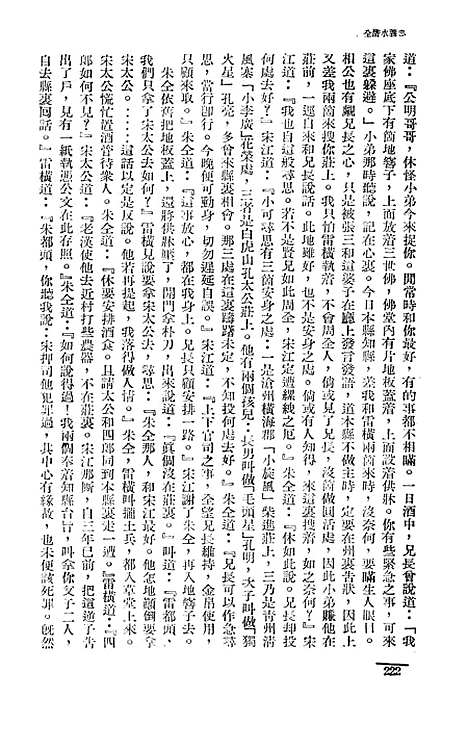 忠義水滸全
道：『公明哥哥，休怪小弟今來捉你。閒常時和你最好，有的事都不相瞞。一日酒中，兄長曾說道：「我
家佛座底下有箇地窨子，上面放着三世佛，佛堂內有片地板蓋着，上面設着供牀。你有些緊急之事，可來
這裏躲避。」小弟那時聽說，記在心裏。今日本縣知縣，差我和雷橫兩箇來時，沒奈何，要瞞生人眼目。
相公也有覷兄長之心，只是被張三和這婆子在廳上發言發語，道本縣不做主時，定要在州裏告狀，因此上
又差我兩箇來搜你莊上。我只怕雷橫執着，不會周全人，倘或見了兄長，沒箇做圓活處，因此小弟賺他在
莊前，一逕自來和兄長說話。此地雖好，也不是安身之處。倘或有人知得，來這裏搜着，如之奈何？』宋
江道：『我也自這般尋思。若不是賢兄如此周全，宋江定遭縲絏之厄。』朱仝道：『休如此說。兄長却投
何處去好？』宋江道：『小可尋思有三箇安身之處：一是滄州橫海郡「小旋風」柴進莊上，二乃是靑州淸
風寨「小李廣」花榮處，三者是白虎山孔太公莊上。他有兩個孩兒：長男叫做「毛頭星」孔明，次子叫做「獨
火星」孔亮，多曾來縣裏相會。那三處在這裏躊躇未定，不知投何處去好。』朱仝道：『兄長可以作急尋
思，當行卽行。今晚便可動身，切勿遲延自誤。』宋江道：『上下官司之事，全望兄長維持，金帛使用，
只顧來取。』朱仝道：『這事放心，都在我身上。兄長只顧安排一路。』宋江謝了朱仝，再入地窨子去。
朱仝依舊把地板蓋上，還將供牀壓了，開門拿朴刀，出來說道：『眞個沒在莊裏。』叫道：『雷都頭，
我們只拿了宋太公去如何？』雷橫見說要拿宋太公去，尋思：『朱仝那人，和宋江最好。他怎地顚倒要拿
宋太公。……這話以定是反說。他若再提起，我落得做人情。』朱仝，雷橫叫攏土兵，都入草堂上來。
宋太公慌忙置酒管待衆人。朱仝道：『休要安排酒食。且請太公和四郎同到本縣裏走一遭。』雷橫道：『四
郎如何不見？』宋太公道：『老漢使他去近村打些農器，不在莊裏。宋江那厮，自三年已前，把這逆子告
出了戶，見有一紙執憑公文在此存照。』朱仝道：『如何說得過！我兩個奉着知縣台旨，叫拿你父子二人，
自去縣裏囘話。』雷橫道：『朱都頭，你聽我說：宋押司他犯罪過，其中必有緣故，也未便該死罪。旣然
222